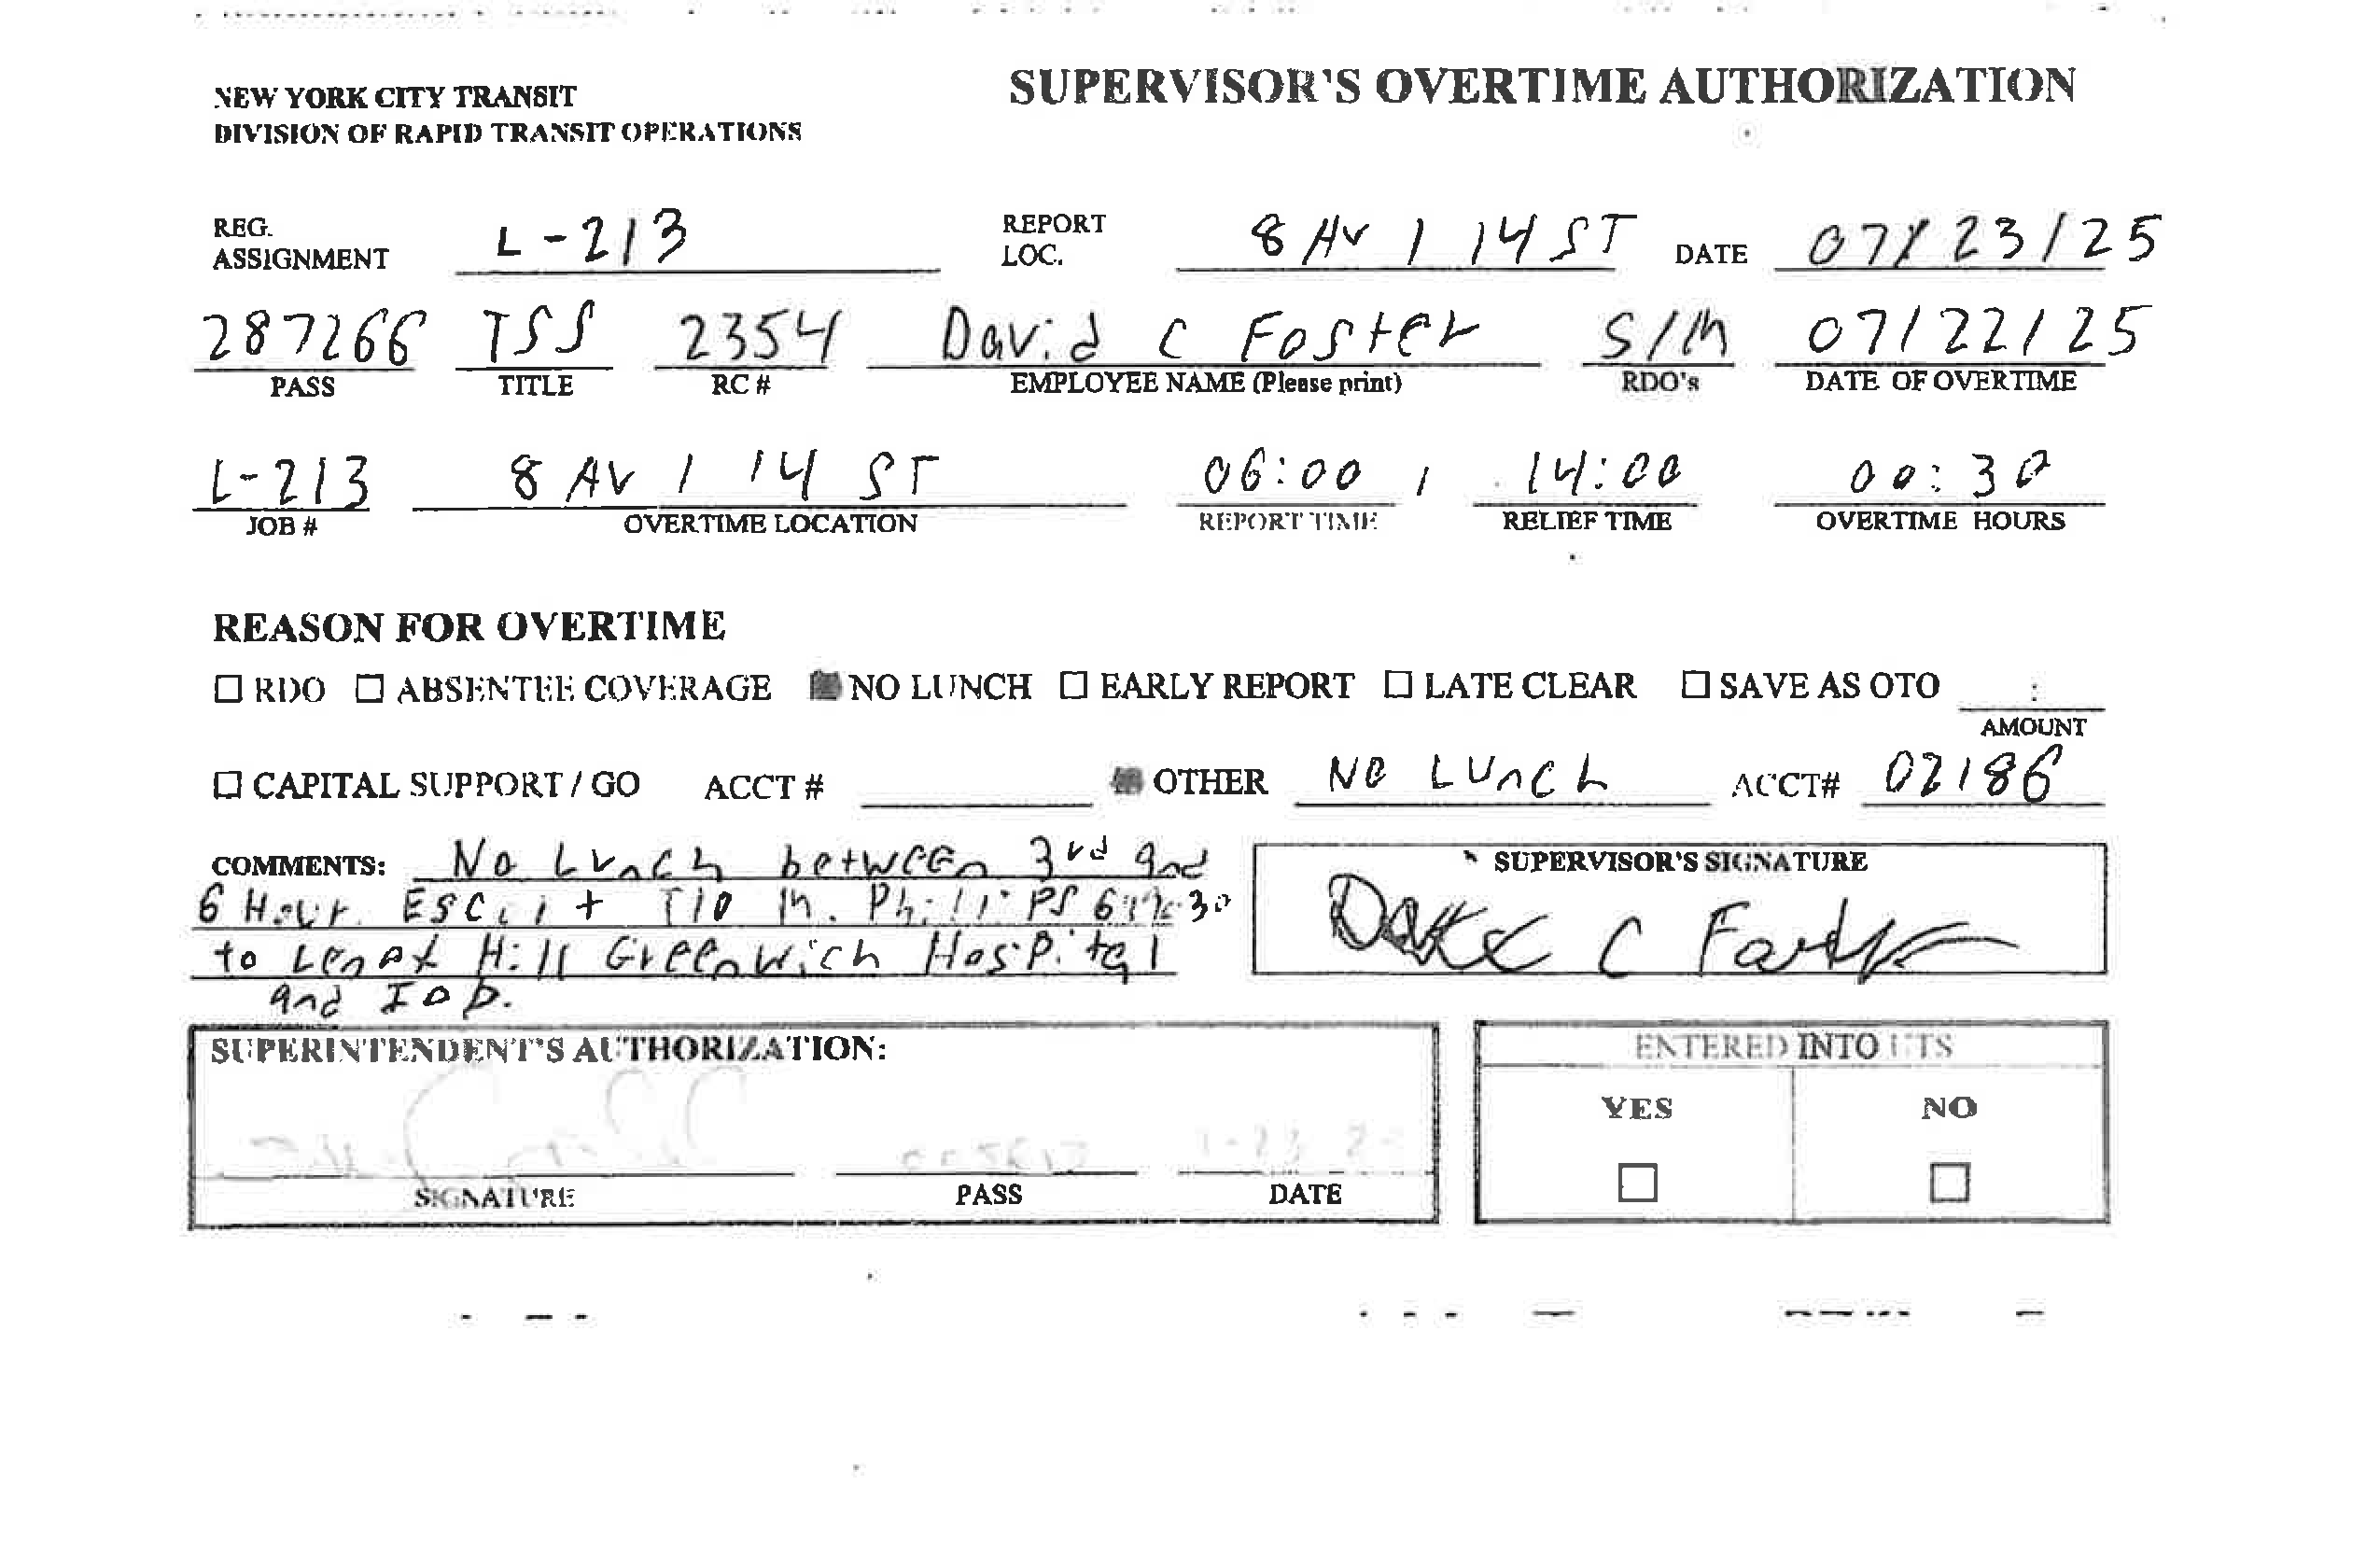 NEW YORK CITY TRANSIT
DIVISION OF RAPID TRANSIT OPERATIONS
SUPERVISOR'S OVERTIME AUTHORIZATION
REG. ASSIGNMENT L-213 REPORT LOC. 8 AV / 14 ST DATE 07/23/25
287266 TSS 2354 David C Foster S/M 07/22/25
PASS TITLE RC # EMPLOYEE NAME (Please print) RDO's DATE OF OVERTIME
L-213 8 AV / 14 ST 06:00 / 14:00 00:30
JOB # OVERTIME LOCATION REPORT TIME RELIEF TIME OVERTIME HOURS
REASON FOR OVERTIME
☐ RDO ☐ ABSENTEE COVERAGE ■ NO LUNCH ☐ EARLY REPORT ☐ LATE CLEAR ☐ SAVE AS OTO :
AMOUNT
☐ CAPITAL SUPPORT / GO ACCT # ■ OTHER No Lunch ACCT# 02186
COMMENTS: No Lunch between 3rd and
6 Hour. Escort T/O M. Phillips
to Lenox Hill Greenwich Hospital
and IOD.
SUPERVISOR'S SIGNATURE
SUPERINTENDENT'S AUTHORIZATION:
SIGNATURE PASS DATE
ENTERED INTO UTS
YES NO
☐ ☐